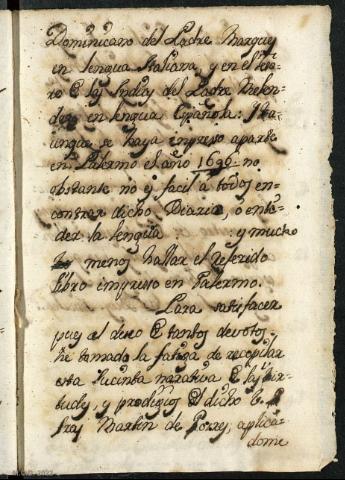 Dominicano del Padre Marquez
en lengua Italiana, y en el teso-
ro de las Indias del Padre Melen-
dez en lengua Española: Y ta
unque se haya impreso aparte
en Palermo el año 1696. no
obstante no es facil à todos en-
contrar dicho Diario, o enten-
der la lengua : y mucho
menos hallar el referido
libro impreso en Palermo.
Para satisfacer
pues al deseo de tantos devotos,
he tomado la fatiga de recopilar
esta sucinta narrativa de las vir-
tudes, y prodigios del dicho
fray Martin de Porres; aplica-
dome